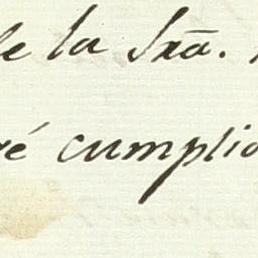 de la Sra.
ré cumplid